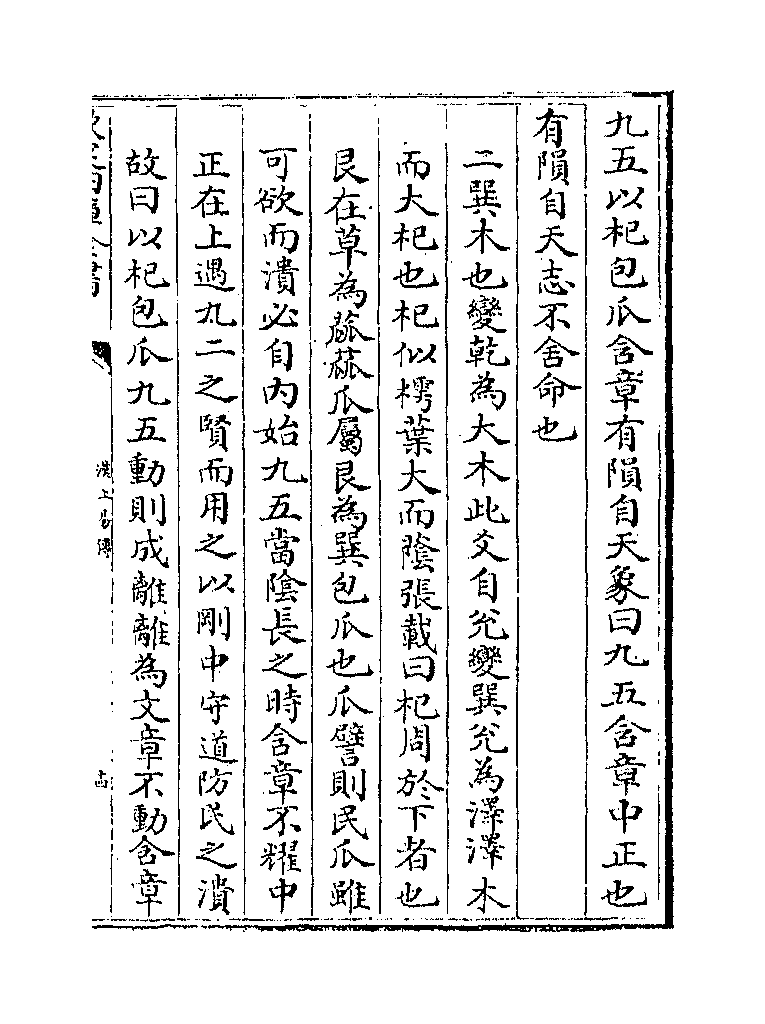 九五以杞包瓜含章有隕自天象曰九五含章中正也
有隕自天志不舍命也
二巽木也變乾為大木此爻自兊變巽兊為澤澤木
而大杞也杞似樗葉大而蔭張載曰杞周於下者也
艮在草為蓏蓏瓜屬艮為巽包瓜也瓜譬則民瓜雖
可欲而潰必自内始九五當陰長之時含章不耀中
正在上遇九二之賢而用之以剛中守道防民之潰
故曰以杞包瓜九五動則成離離為文章不動含章
漢上易傳